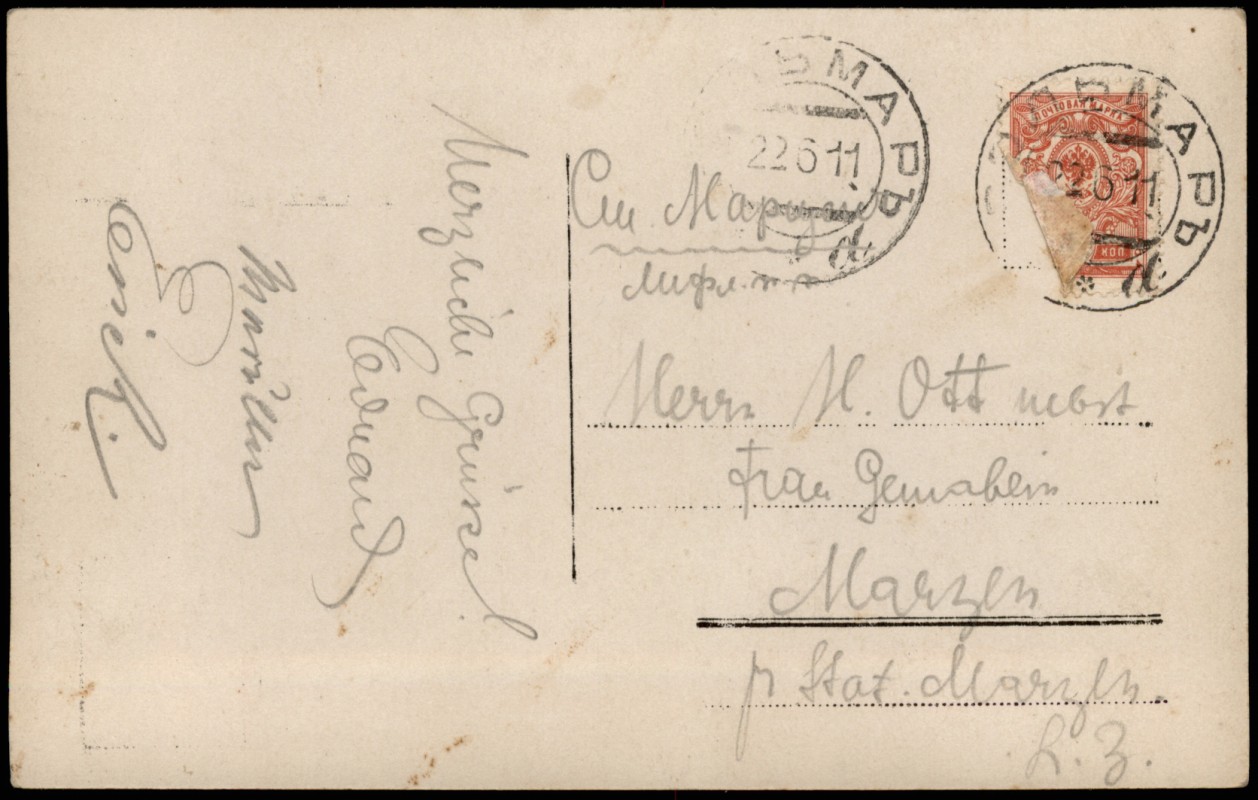 Herzliche Grüsse!
Eduard
Erich.
ЬМАРЪ
22 6 11
d
ПОЧТОВАЯ МАРКА
КОП
МАРЪ
22 6 11
d
Ст. Марцен
Лифл.
Herrn H. Ott nebst
Frau Gemahlin
Marzen
p Stat. Marzen.
L. Z.